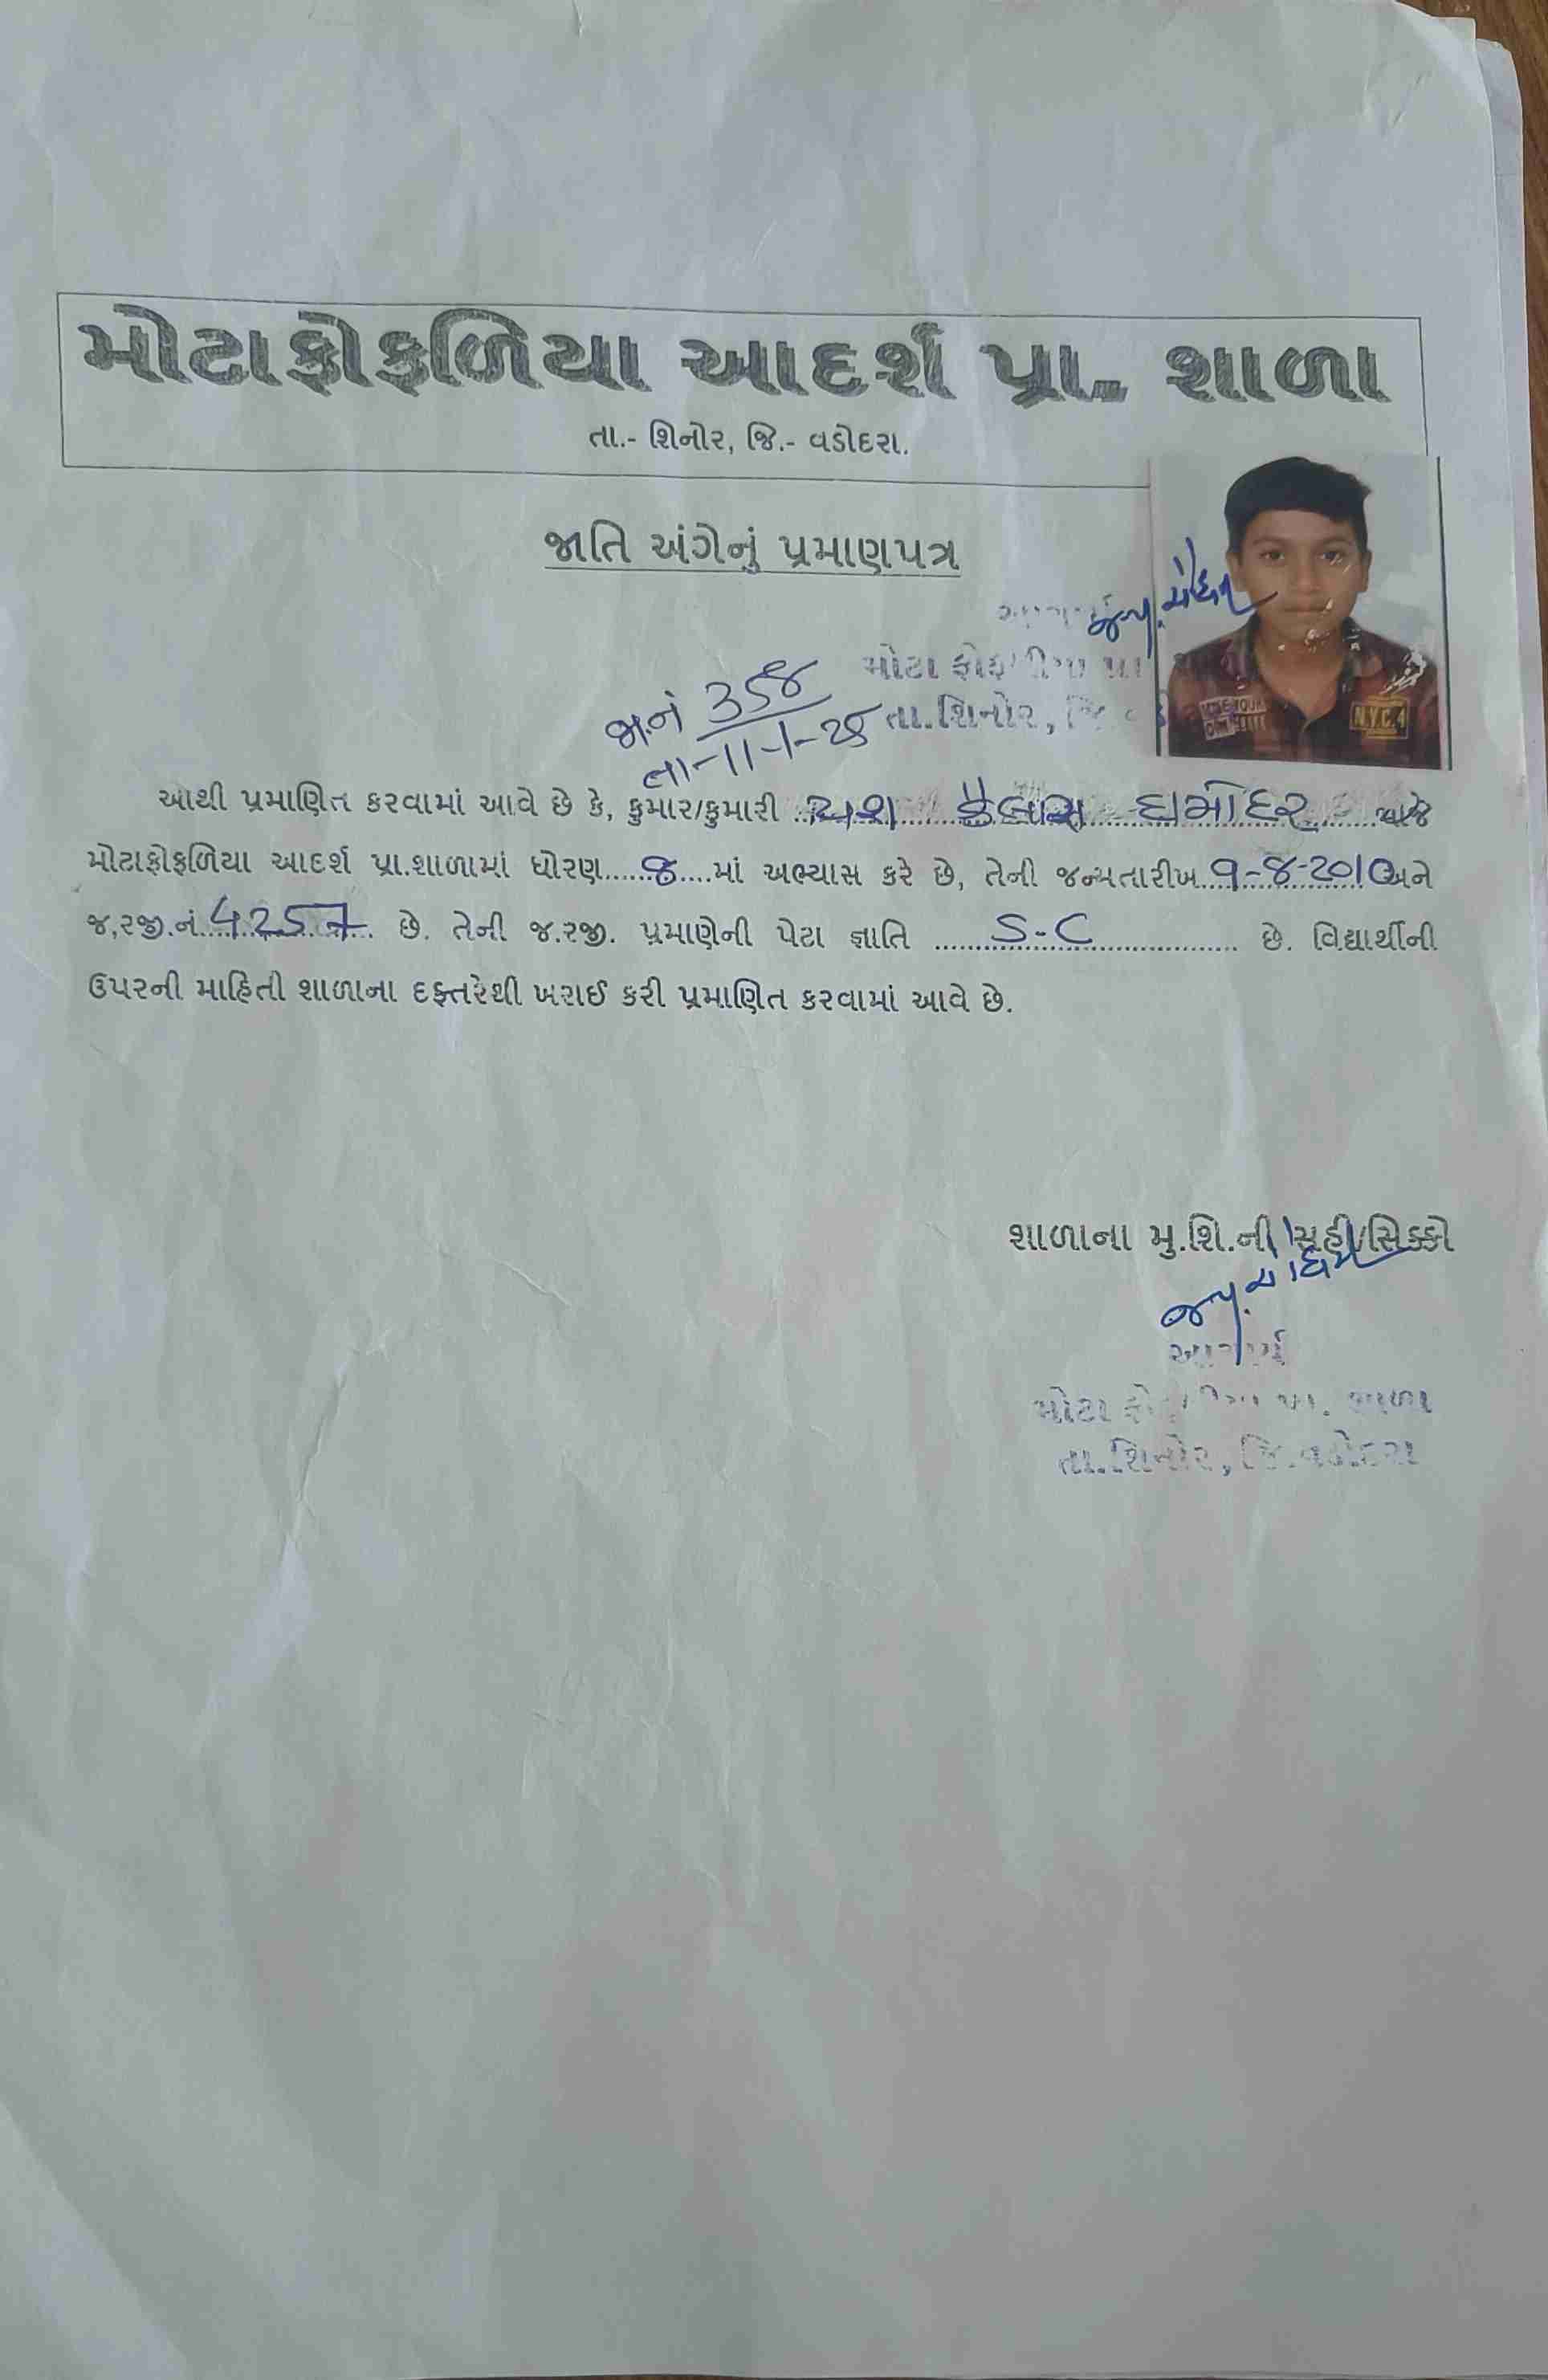 મોટાફોફળિયા આદર્શ પ્રા. શાળા
તા.- શિનોર, જિ.- વડોદરા.
જાતિ અંગેનું પ્રમાણપત્ર
મોટા
તા.શિનોર, જિ.
જા.નં 358
તા-11-1-25
આથી પ્રમાણિત કરવામાં આવે છે કે, કુમાર/કુમારી યશ કૈલાસ દામોદર આજે
મોટાફોફળિયા આદર્શ પ્રા.શાળામાં ધોરણ 8 માં અભ્યાસ કરે છે, તેની જન્મતારીખ 9-8-2010 અને
જ,રજી.નં. 4257 છે. તેની જ.રજી. પ્રમાણેની પેટા જ્ઞાતિ S-C છે. વિદ્યાર્થીની
ઉપરની માહિતી શાળાના દફતરેથી ખરાઈ કરી પ્રમાણિત કરવામાં આવે છે.
શાળાના મુ.શિ.ની સહી/સિક્કો
આચાર્ય
મોટા ફોફળીયા પ્રા. શાળા
તા.શિનોર, જિ.વડોદરા
N.Y.C.4